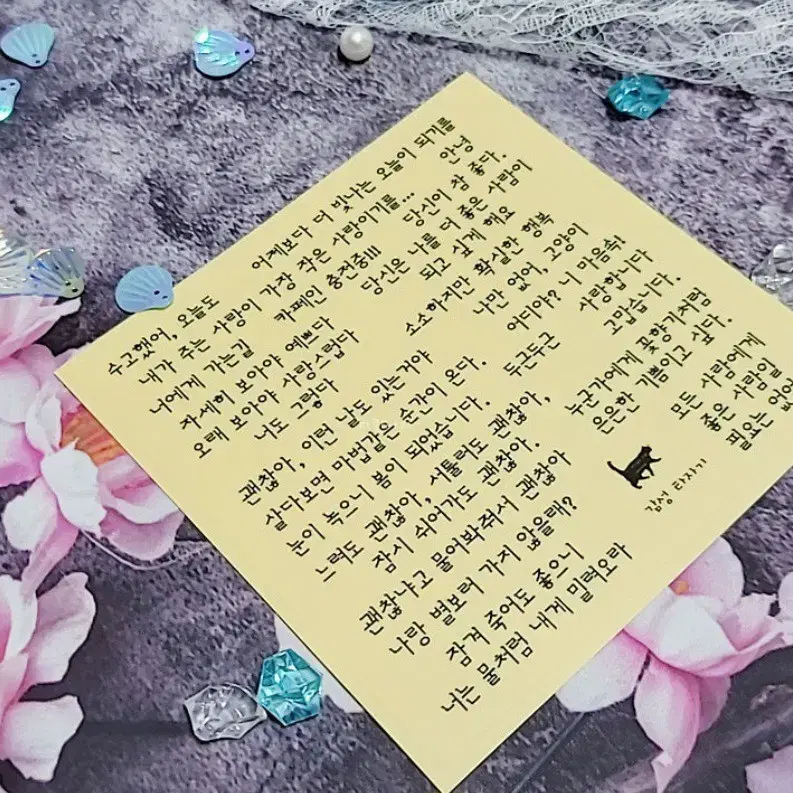 수고했어, 오늘도
어제보다 더 빛나는 오늘이 되기를
안녕
내가 주는 사랑이 가장 작은 사랑이기를...
당신이 참 좋다.
너에게 가는길
카페인 충전중!!!
당신은 나를 더 좋은 사람이
되고 싶게 해요
자세히 보아야 예쁘다
오래 보아야 사랑스럽다
너도 그렇다
소소하지만 확실한 행복
나만 없어, 고양이
어디야? 니 마음속
괜찮아, 이런 날도 있는거야
살다보면 마법같은 순간이 온다.
두근두근
사랑합니다
고맙습니다.
눈이 녹으니 봄이 되었습니다.
느려도 괜찮아, 서툴러도 괜찮아,
잠시 쉬어가도 괜찮아.
누군가에게 꽃향기처럼
은은한 기쁨이고 싶다.
괜찮냐고 물어봐줘서 괜찮아
나랑 별보러 가지 않을래?
모든 사람에게
좋은 사람일
필요는
잠겨 죽어도 좋으니
너는 물처럼 내게 밀려오라
감성 타자기